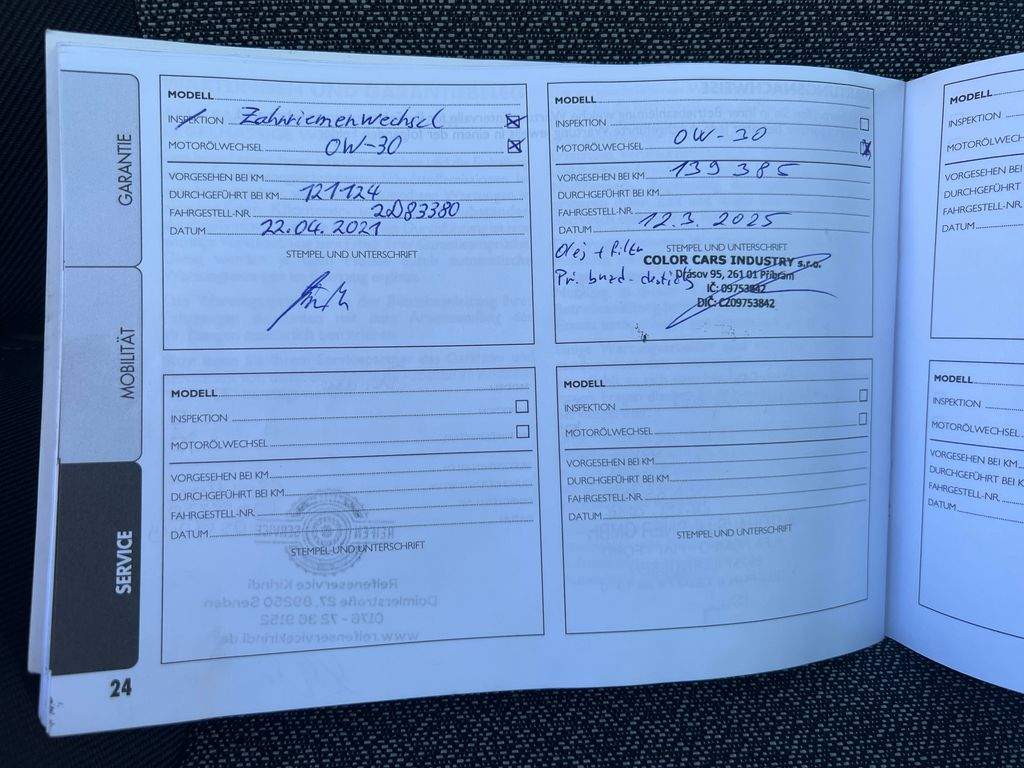 GARANTIE
MOBILITÄT
SERVICE
24
MODELL
INSPEKTION Zahnriemenwechsel
MOTORÖLWECHSEL 0W-30
VORGESEHEN BEI KM
DURCHGEFÜHRT BEI KM 121124
FAHRGESTELL-NR. 2D83380
DATUM 22.04.2021
STEMPEL UND UNTERSCHRIFT
MODELL
INSPEKTION
MOTORÖLWECHSEL 0W-30
VORGESEHEN BEI KM 139 385
DURCHGEFÜHRT BEI KM
FAHRGESTELL-NR.
DATUM 12.3. 2025
STEMPEL UND UNTERSCHRIFT
Olej + filtr
Př. brzd. destičky
COLOR CARS INDUSTRY s.r.o.
Drásov 95, 261 01 Příbram
IČ: 09753842
DIČ: CZ09753842
MODELL
INSPEKTION
MOTORÖLWECHSEL
VORGESEHEN BEI KM
DURCHGEFÜHRT BEI KM
FAHRGESTELL-NR.
DATUM
STEMPEL UND UNTERSCHRIFT
REIFEN SERVICE
Reifenservice Kirindi
Daimlerstraße 27, 89250 Senden
0176 - 72 30 9152
www.reifenservicekirindi.de
MODELL
INSPEKTION
MOTORÖLWECHSEL
VORGESEHEN BEI KM
DURCHGEFÜHRT BEI KM
FAHRGESTELL-NR.
DATUM
STEMPEL UND UNTERSCHRIFT
MODELL
INSPEKTION
MOTORÖLWECHSEL
VORGESEHEN BEI KM
DURCHGEFÜHRT
FAHRGESTELL-NR.
DATUM
MODELL
INSPEKTION
MOTORÖLWECHSEL
VORGESEHEN BEI KM
DURCHGEFÜHRT BEI K
FAHRGESTELL-NR.
DATUM